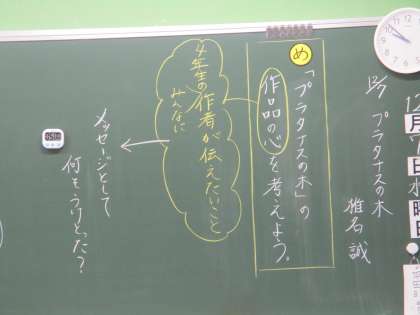 12/7 プラタナスの木
椎名誠
め
「プラタナスの木」の
作品の心を考えよう。
4年生の作者が伝えたいこと
みんなに
メッセージとして
何をうけとった？
12
月
7
日
水
曜
日